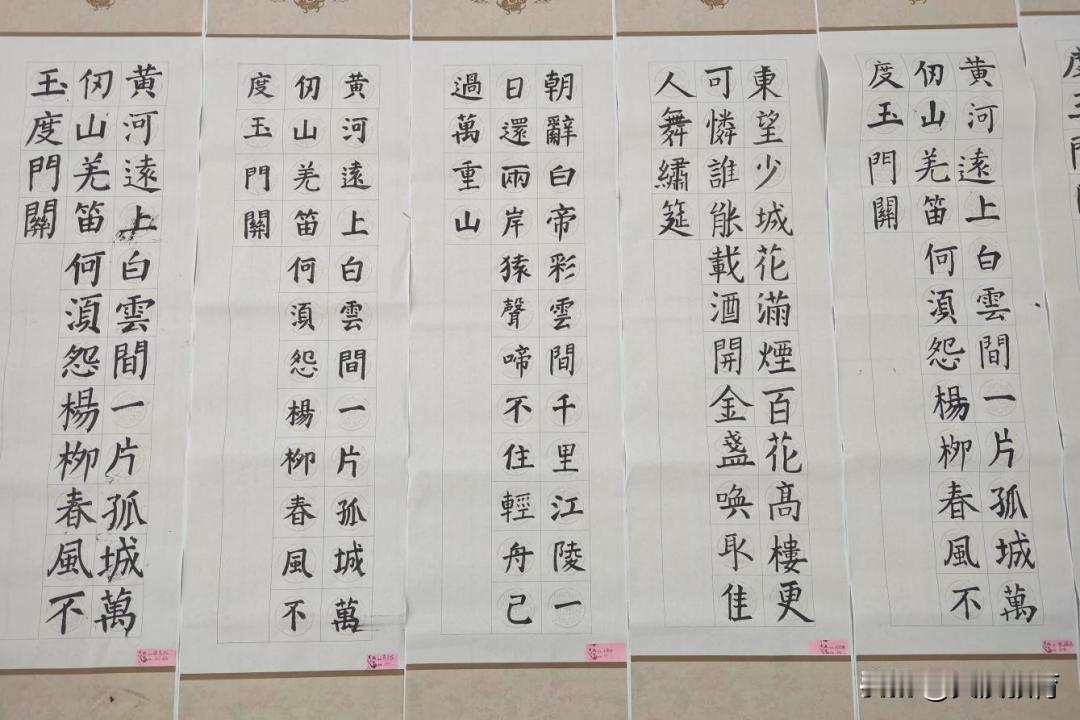 黄河遠上白雲間一片孤城萬
仞山羌笛何須怨楊柳春風不
度玉門關
東望少城花滿煙百花高樓更
可憐誰能載酒開金盞喚取佳
人舞繡筵
朝辭白帝彩雲間千里江陵一
日還兩岸猿聲啼不住輕舟已
過萬重山
黄河遠上白雲間一片孤城萬
仞山羌笛何須怨楊柳春風不
度玉門關
黄河遠上白雲間一片孤城萬
仞山羌笛何須怨楊柳春風不
玉度門關